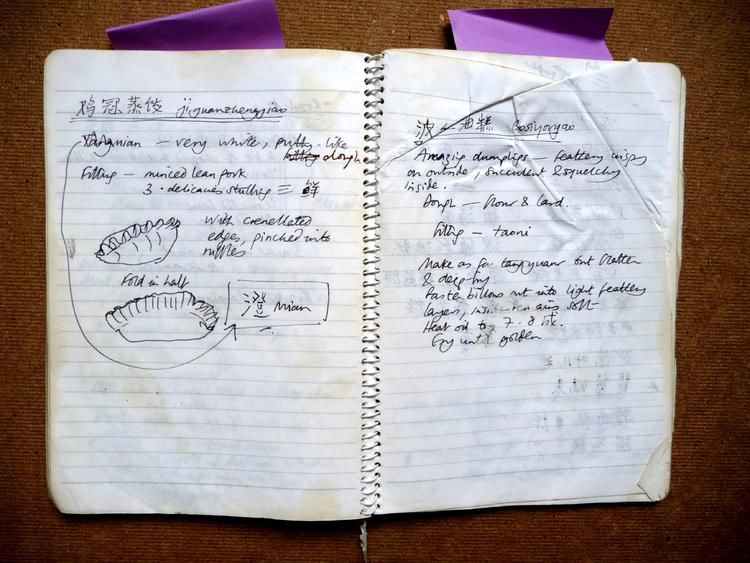 鸡冠蒸饺 jiguanzhengjiao
— very white, putty-like
dough
Filling — minced lean pork
3-delicacies stuffing 三鲜
With crenellated
edges, pinched into
ruffles
Fold in half
澄 mian
波 油糕 Bosiyougao
Amazing dumplings — feathery crispy
on outside, succulent & squelchy
inside.
Dough — flour & lard.
filling — taoni
Make as for tangyuan but flatten
& deep-fry
Paste billows out into light feathery
layers, inside remains soft
Heat oil to 7-8
Fry until golden